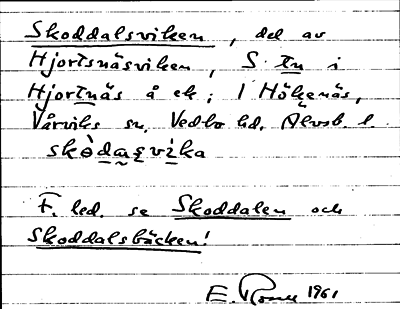 Skoddalsviken, del av
Hjortsnäsviken, S. tn i
Hjortnäs å ek; i Hökenäs,
Vårviks sn, Vedbo hd, Älvsb. l.
F. led. se Skoddalen och
Skoddalsbäcken!
E. 1961